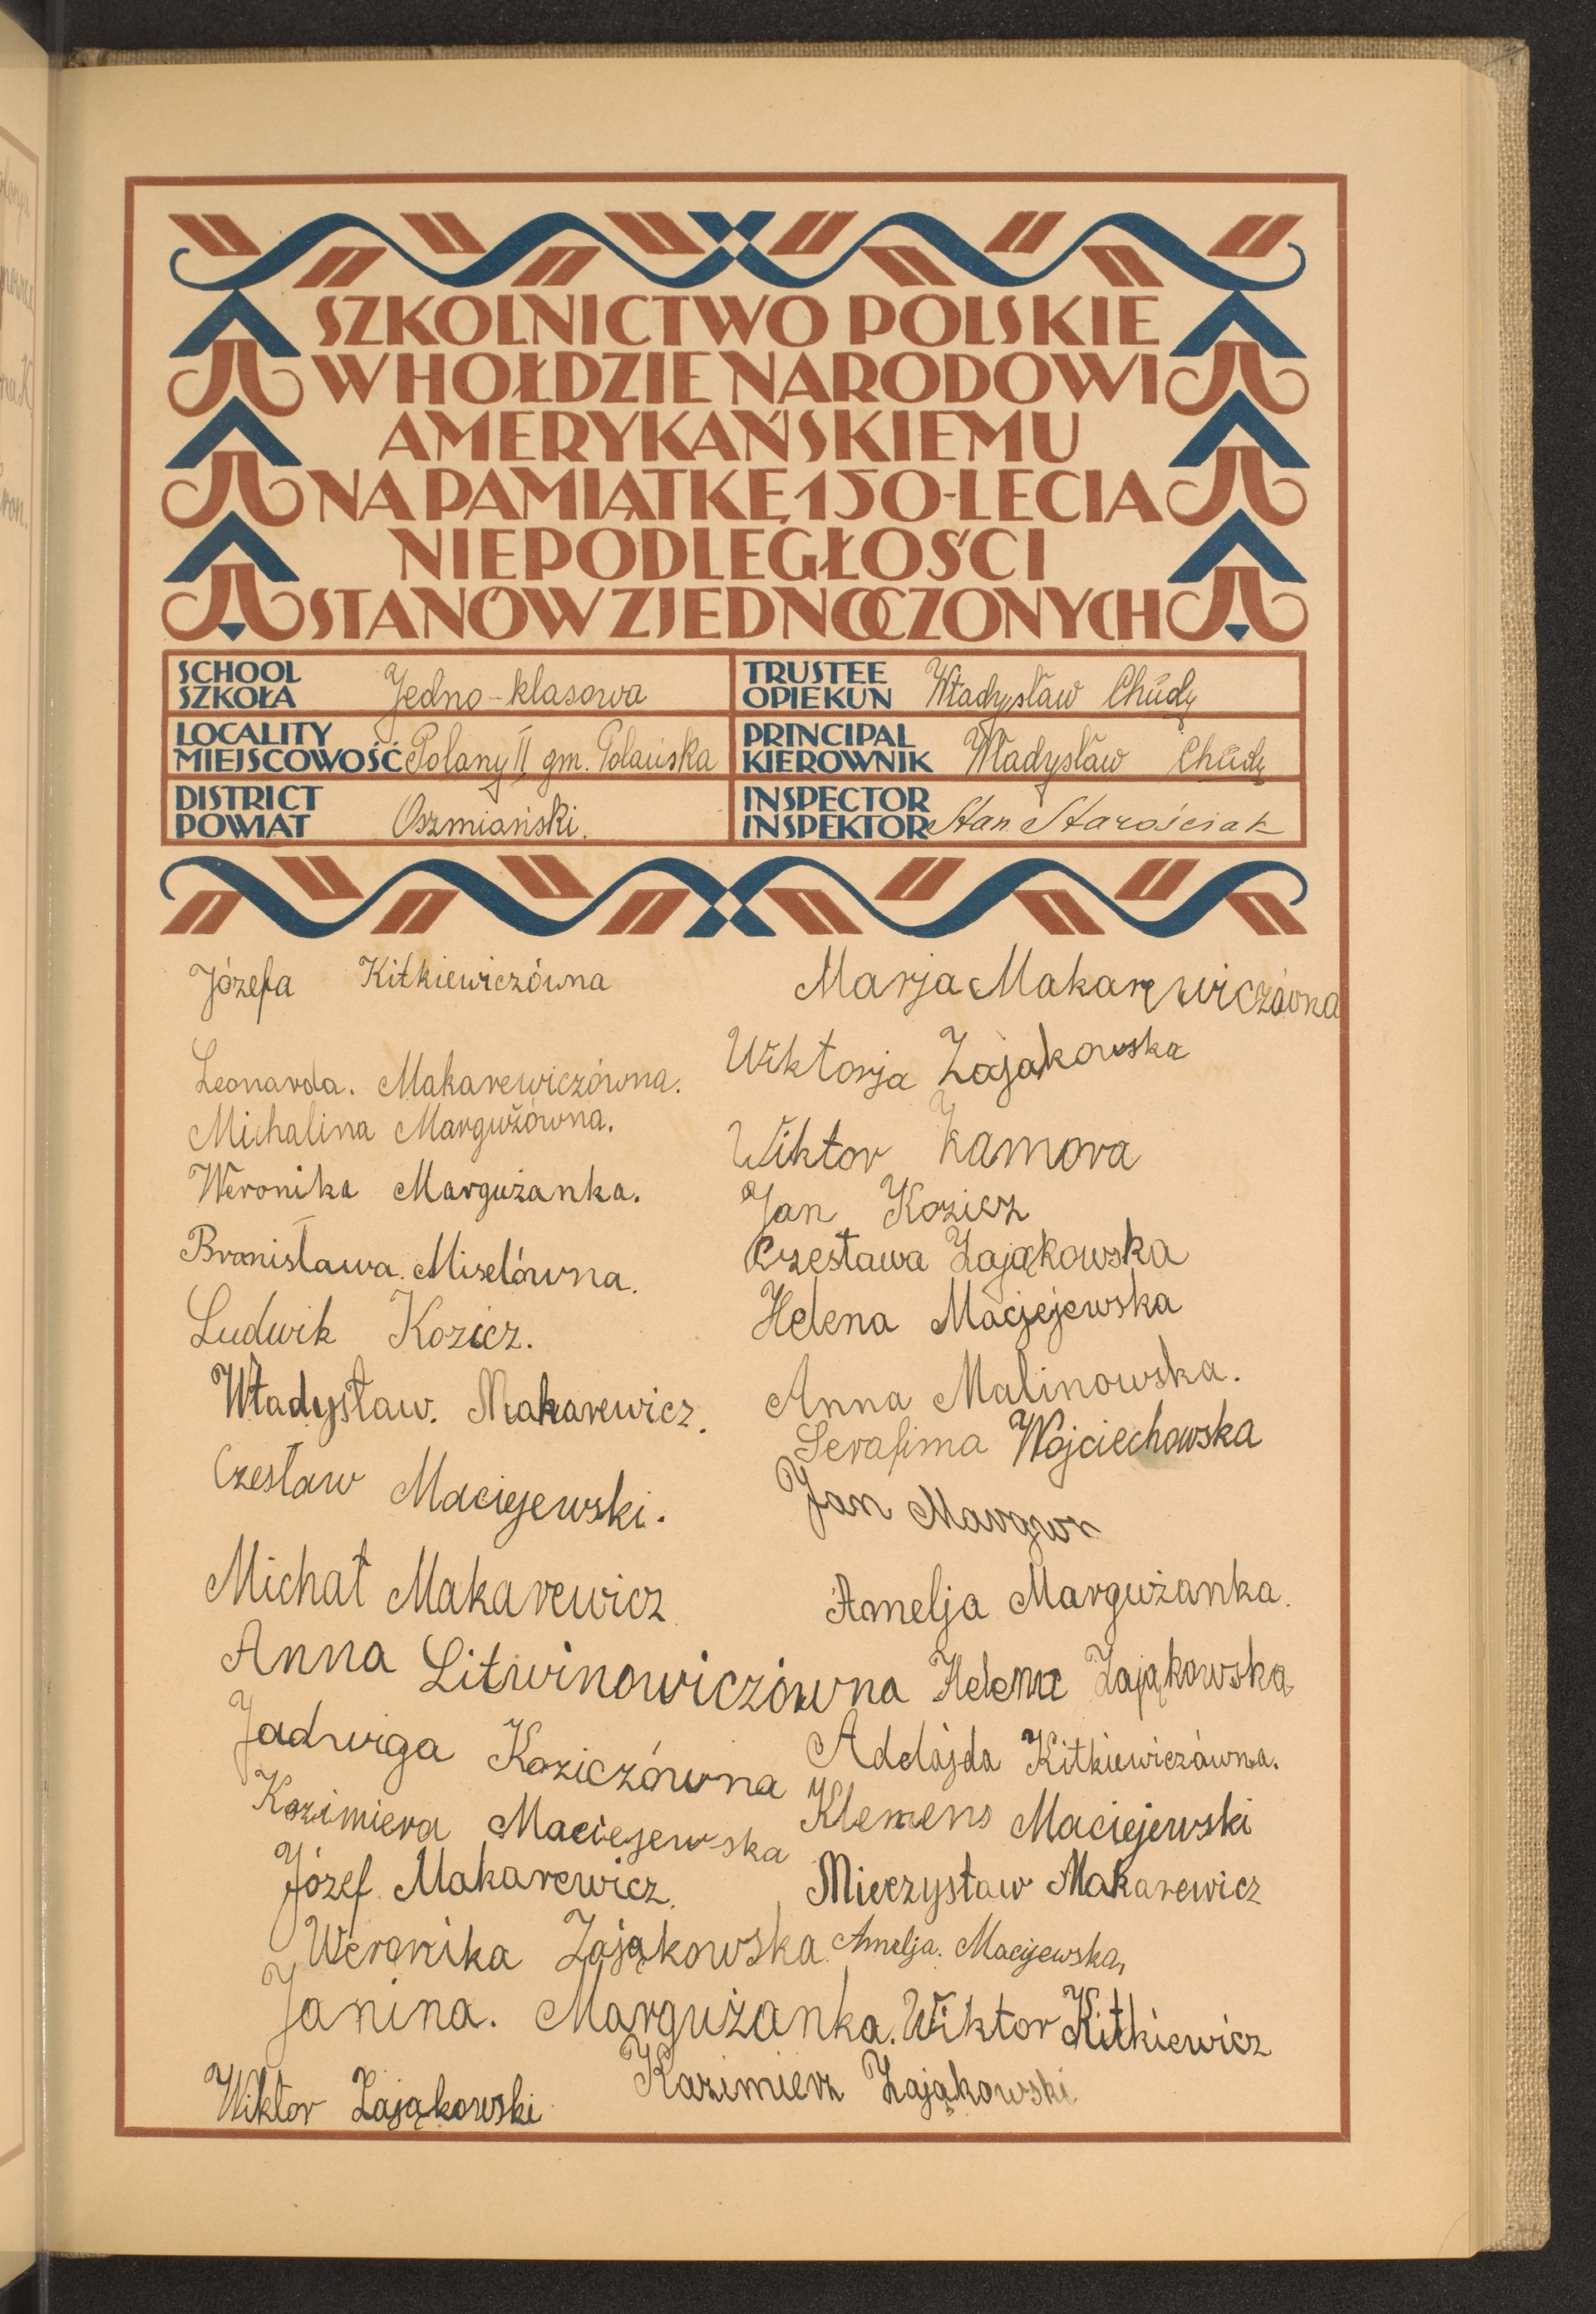 SZKOLNICTWO POLSKIE
W HOŁDZIE NARODOWI
AMERYKAŃSKIEMU
NA PAMIĄTKĘ 150-LECIA
NIEPODLEGŁOŚCI
STANÓW ZJEDNOCZONYCH
SCHOOL
SZKOŁA Jedno-klasowa
TRUSTEE
OPIEKUN Władysław Chudy
LOCALITY
MIEJSCOWOŚĆ Polany II gm. Polańska
PRINCIPAL
KIEROWNIK Władysław Chudy
DISTRICT
POWIAT Oszmiański.
INSPECTOR
INSPEKTOR Stan. Starościak
Józefa Kitkiewiczówna
Leonarda. Makarewiczówna.
Michalina Margużówna.
Weronika Margużanka.
Bronisława. Miselówna.
Ludwik Kozicz.
Władysław. Makarewicz.
Czesław Maciejewski.
Michał Makarewicz
Anna Litwinowiczówna
Jadwiga Koziczówna
Kazimiera Maciejewska
Józef Makarewicz.
Weronika Zająkowska
Janina. Margużanka.
Wiktor Zająkowski
Marja Makarewiczówna
Wiktorja Zająkowska
Wiktor Kamora
Jan Kozicz
Czesława Zająkowska
Helena Maciejewska
Anna Malinowska.
Serafima Wojciechowska
Jan
Amelja Margużanka.
Helena Zająkowska
Adelajda Kitkiewiczówna.
Klemens Maciejewski
Mieczysław Makarewicz
Amelja. Maciejewska,
Wiktor Kitkiewicz
Kazimierz Zająkowski